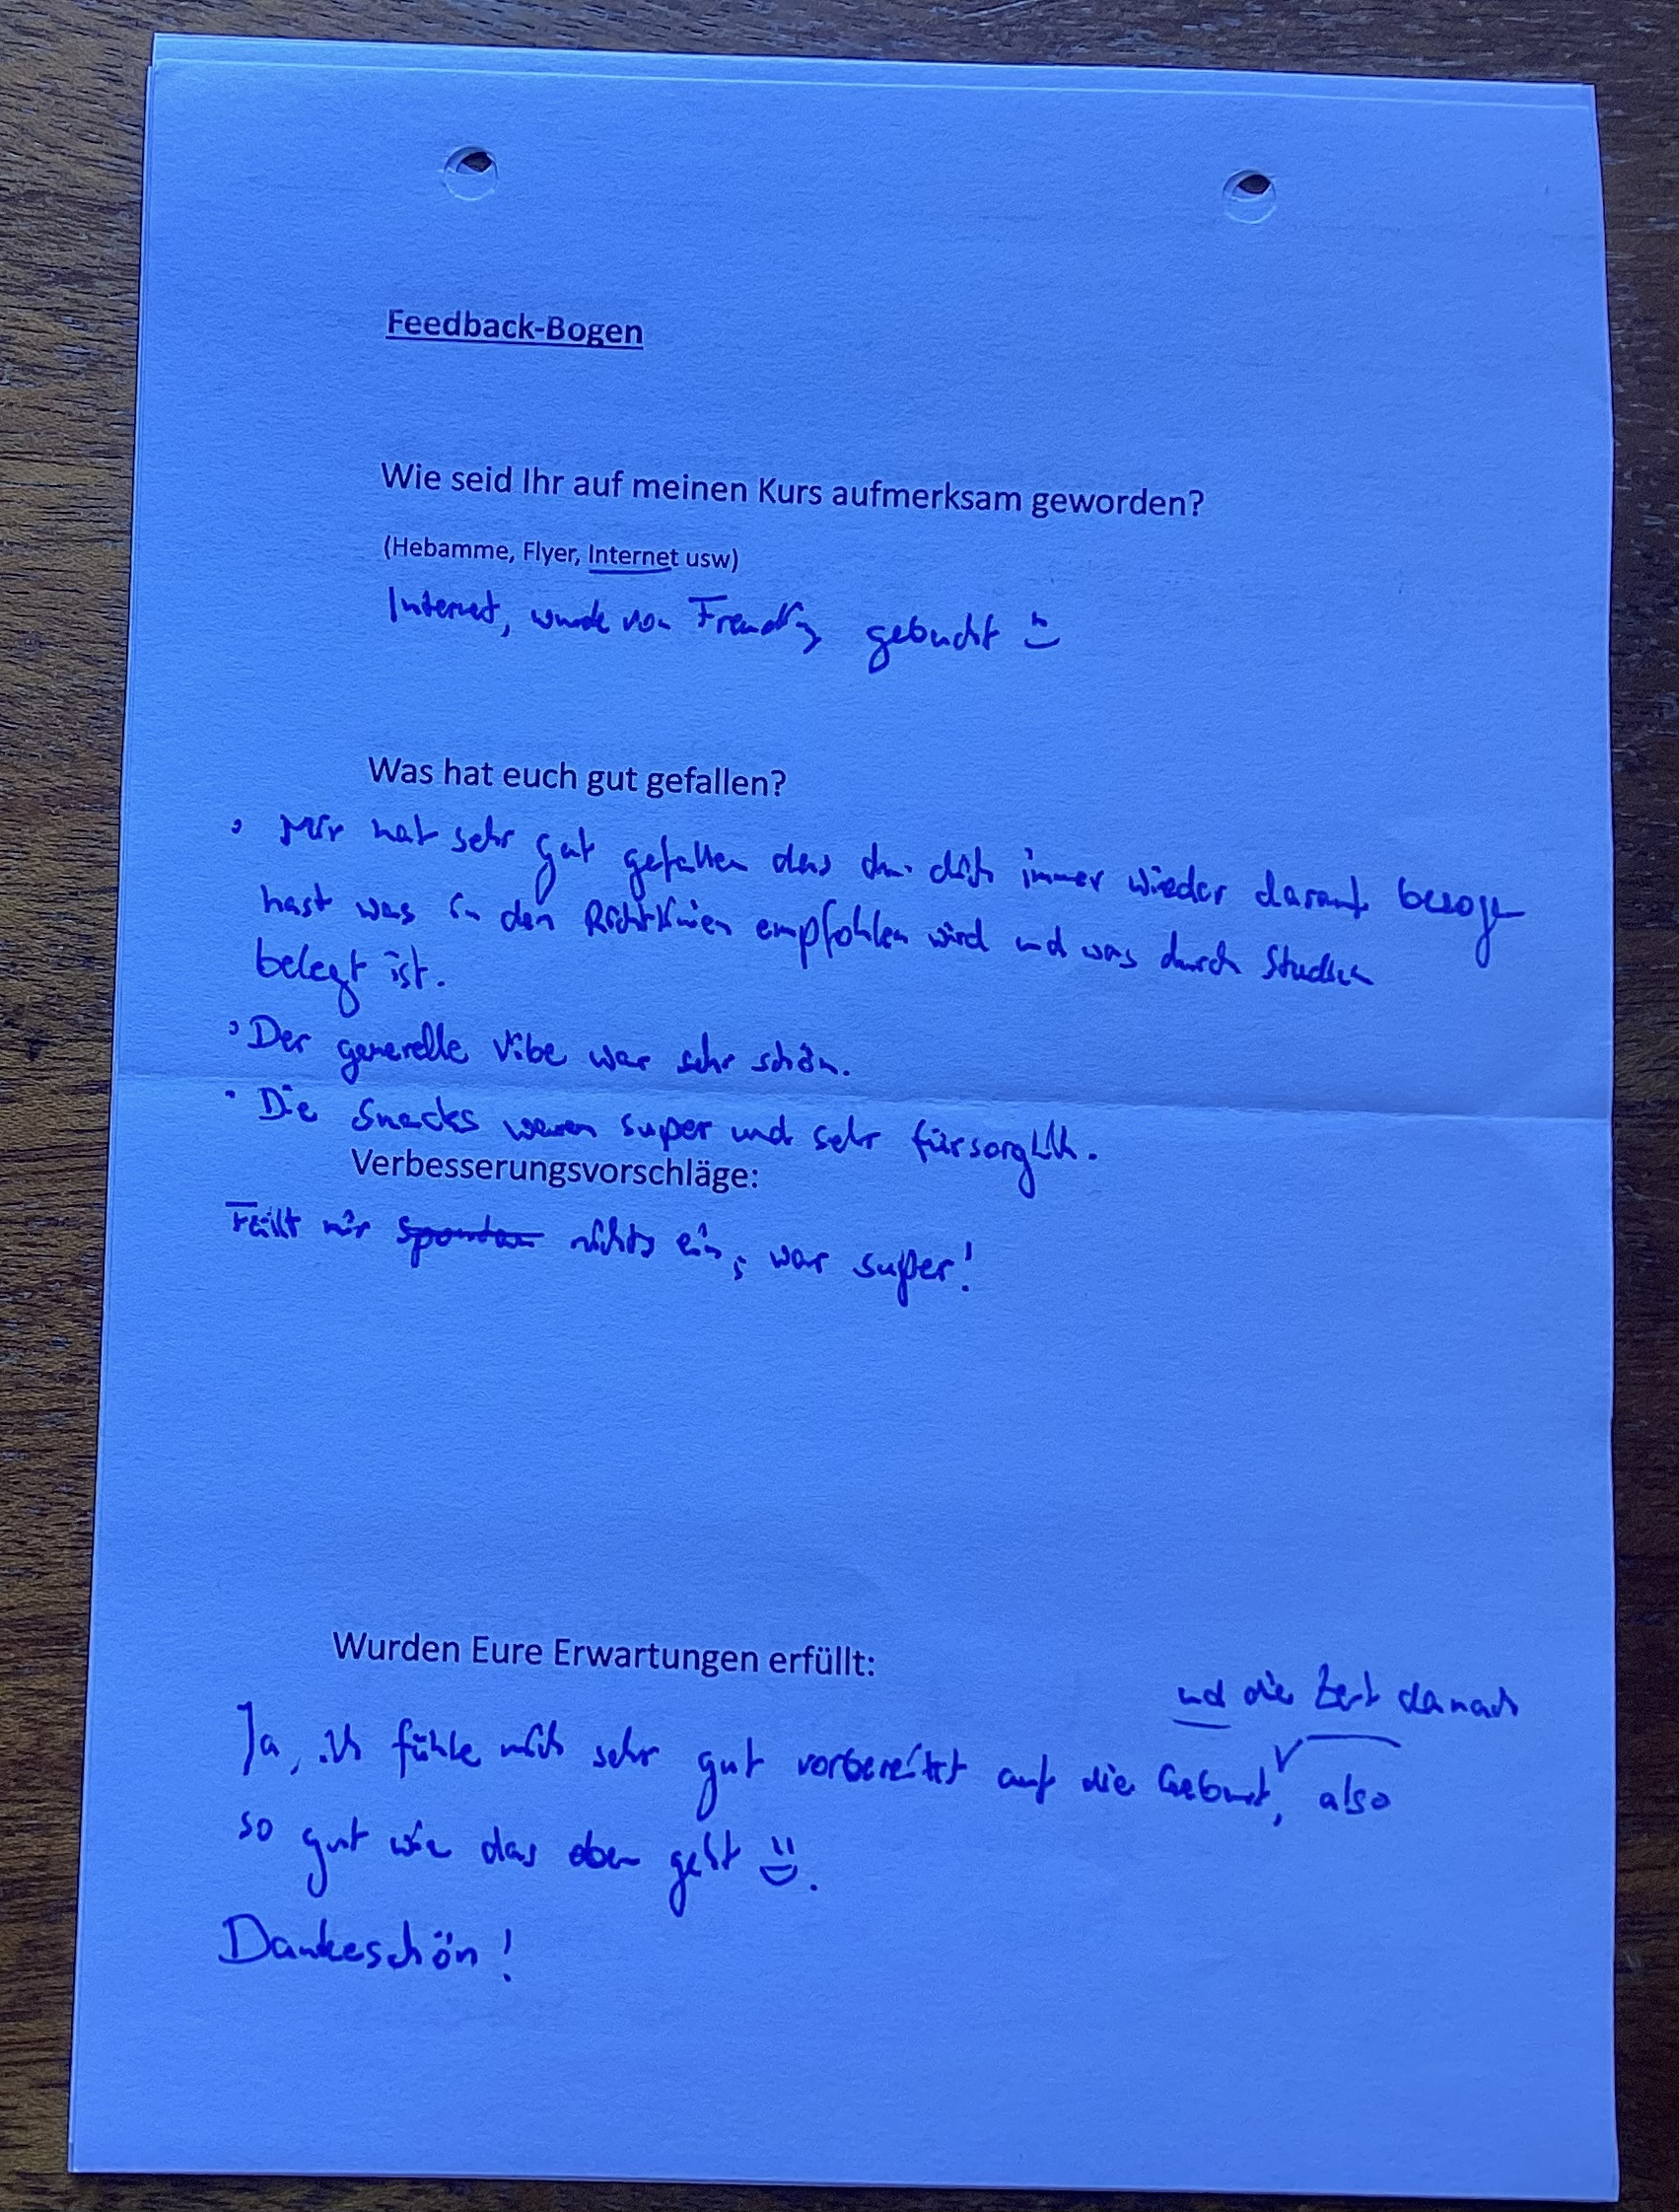 Feedback-Bogen
Wie seid Ihr auf meinen Kurs aufmerksam geworden?
(Hebamme, Flyer, Internet usw)
Internet, wurde von gebucht
Was hat euch gut gefallen?
• Mir hat sehr gut gefallen das du dich immer wieder darauf bezogen
hast was in den Richtlinien empfohlen wird und was durch Studien
belegt ist.
• Der generelle Vibe war sehr schön.
• Die Snacks waren super und sehr fürsorglich.
Verbesserungsvorschläge:
Fällt mir spontan nichts ein, war super!
Wurden Eure Erwartungen erfüllt:
und die Zeit danach
Ja, ich fühle mich sehr gut vorbereitet auf die Geburt, also
so gut wie das eben geht .
Dankeschön!